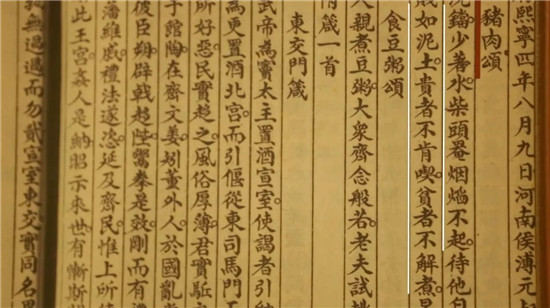 熙寧四年八月九日河南侯溥元
豬肉頌
洗鐺少著水柴頭罨烟焰不起待他
賤如泥土貴者不肯喫貧者不解煮
食豆粥頌
人親煮豆粥大衆齊念般若老夫試挑
箴一首
東交門箴
武帝為竇太主置酒宣室使謁者引
為更置酒北宮而引偃從東司馬門
所好惡民實趨之風俗厚薄君實駈
子館陶在齋文姜董外人於國亂
彼臣朔辟戟趨陛鸞拳是效剛而有
潘維戚禮法遂恣延及齊民惟上所
此王宮姦人是納昭示來世有慚斯
無遏遇而勿戴宣室東交實同名